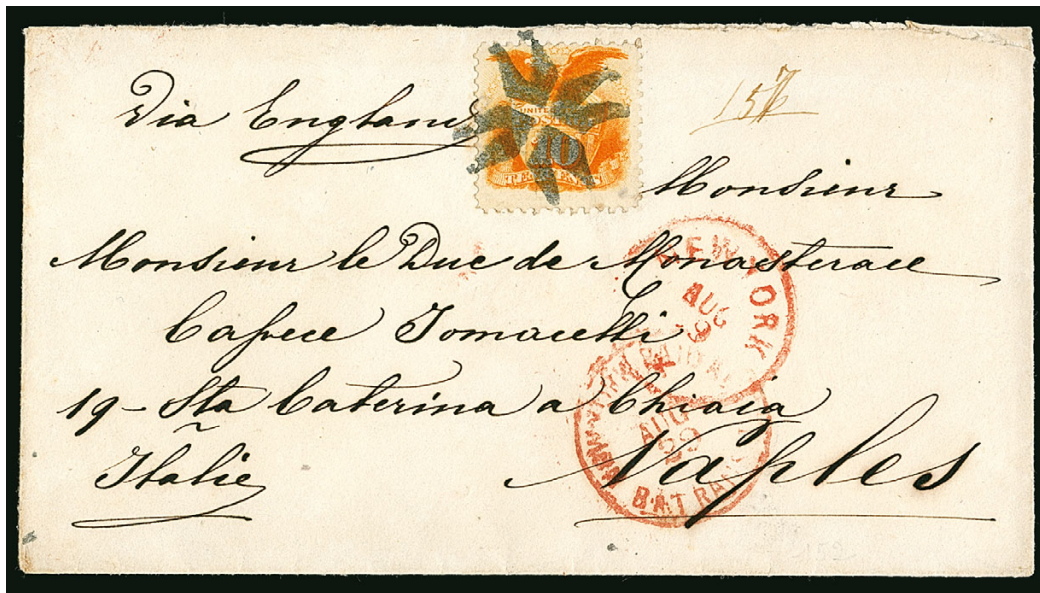 Via England
15
UNITED
10
TEN CENTS
Monsieur
Monsieur le Duc de Monasterace
Capece Tomacelli
19 - Sta Caterina a Chiaia
Italie
Naples
NEW YORK
AUG
AUG